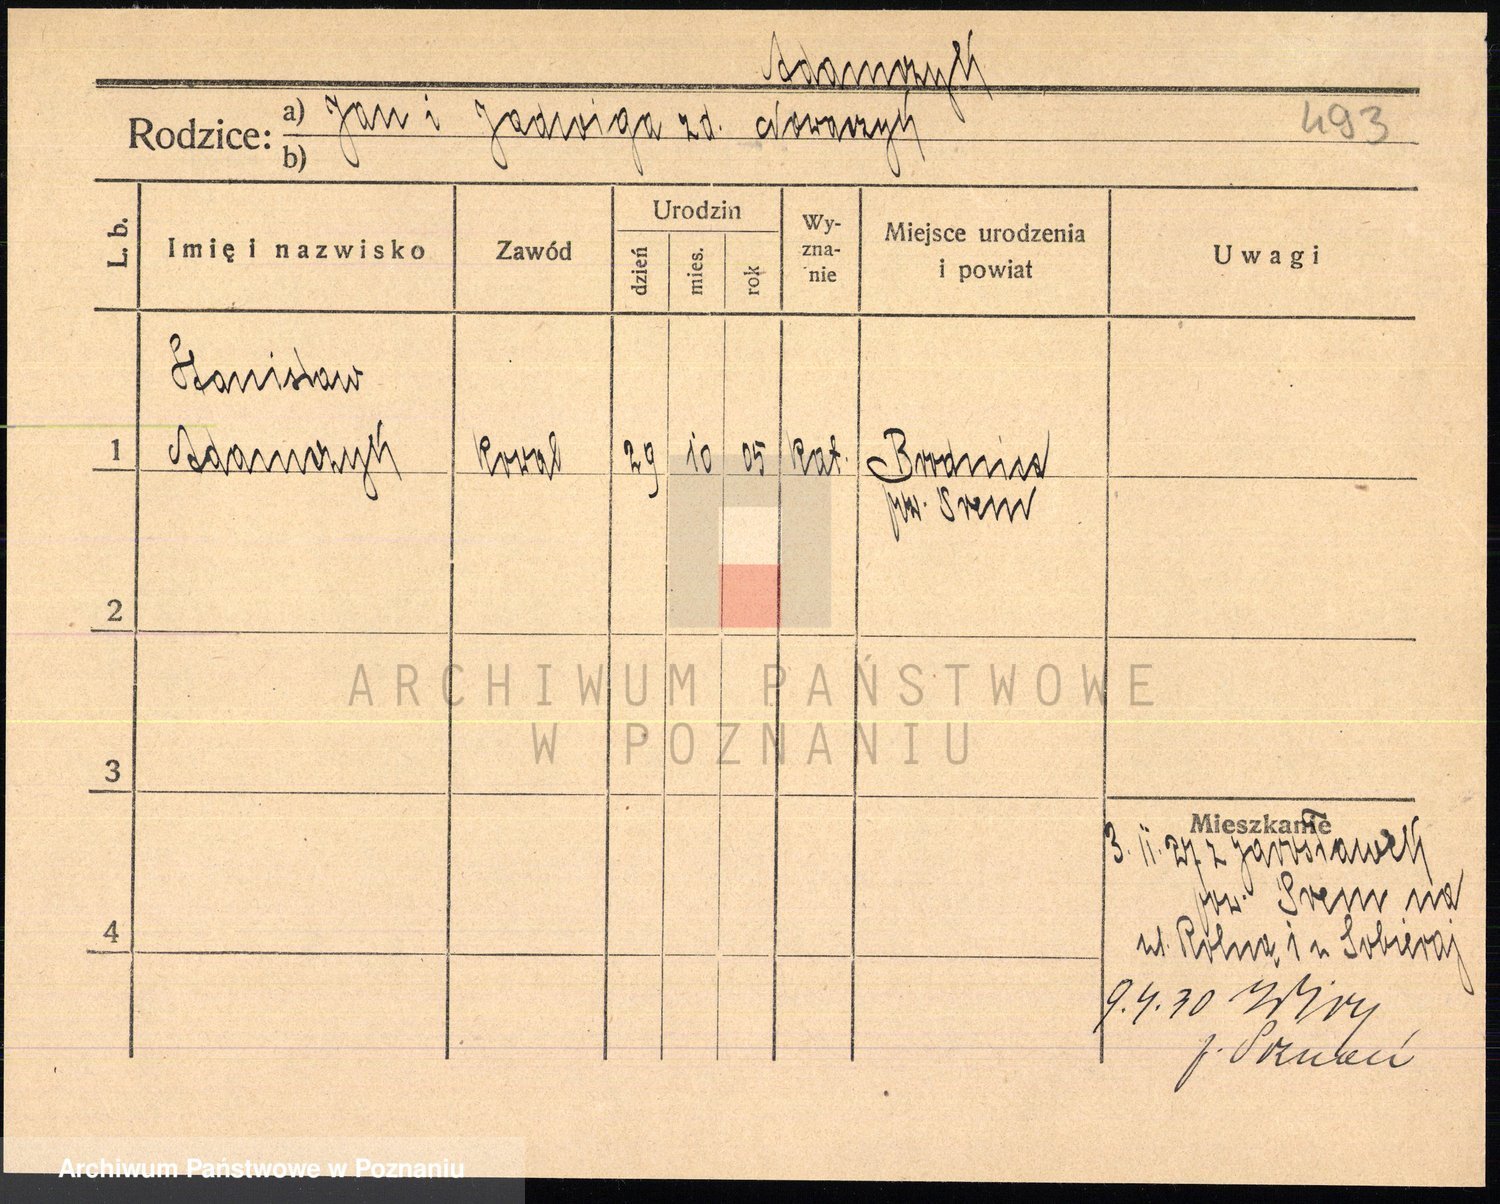 Adamczyk
Rodzice: a) Jan i Jadwiga zd. Nowaczyk
b)
493
L. b.
Imię i nazwisko
Zawód
Urodzin
dzień
mies.
rok
Wy-
zna-
nie
Miejsce urodzenia
i powiat
Uwagi
Stanisław
1 Adamczyk kowal 29 10 05 kat. Brodnica
pow. Śrem
2
3
4
ARCHIWUM PAŃSTWOWE
W POZNANIU
Mieszkanie
3. 11. 27 z Jarosławek
pow. Śrem na
ul. Rolną 1 u Sobieraj
9.4.30 Wiry
p. Poznań
Archiwum Państwowe w Poznaniu